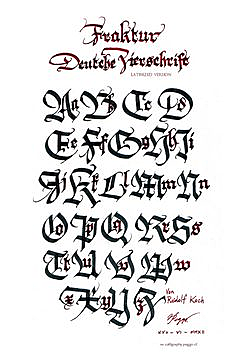 Fraktur
Deutche Zierschrift
LATINIZED VERSION
Aa Bb Cc Dd
Ee Ff Gg Hh Ii
Jj Kk Ll Mm Nn
Oo Pp Qq Rr Ss
Tt Uu Vv Ww
Xx Yy Zz
Von
Rudolf Koch
XVO - VI - MMXI